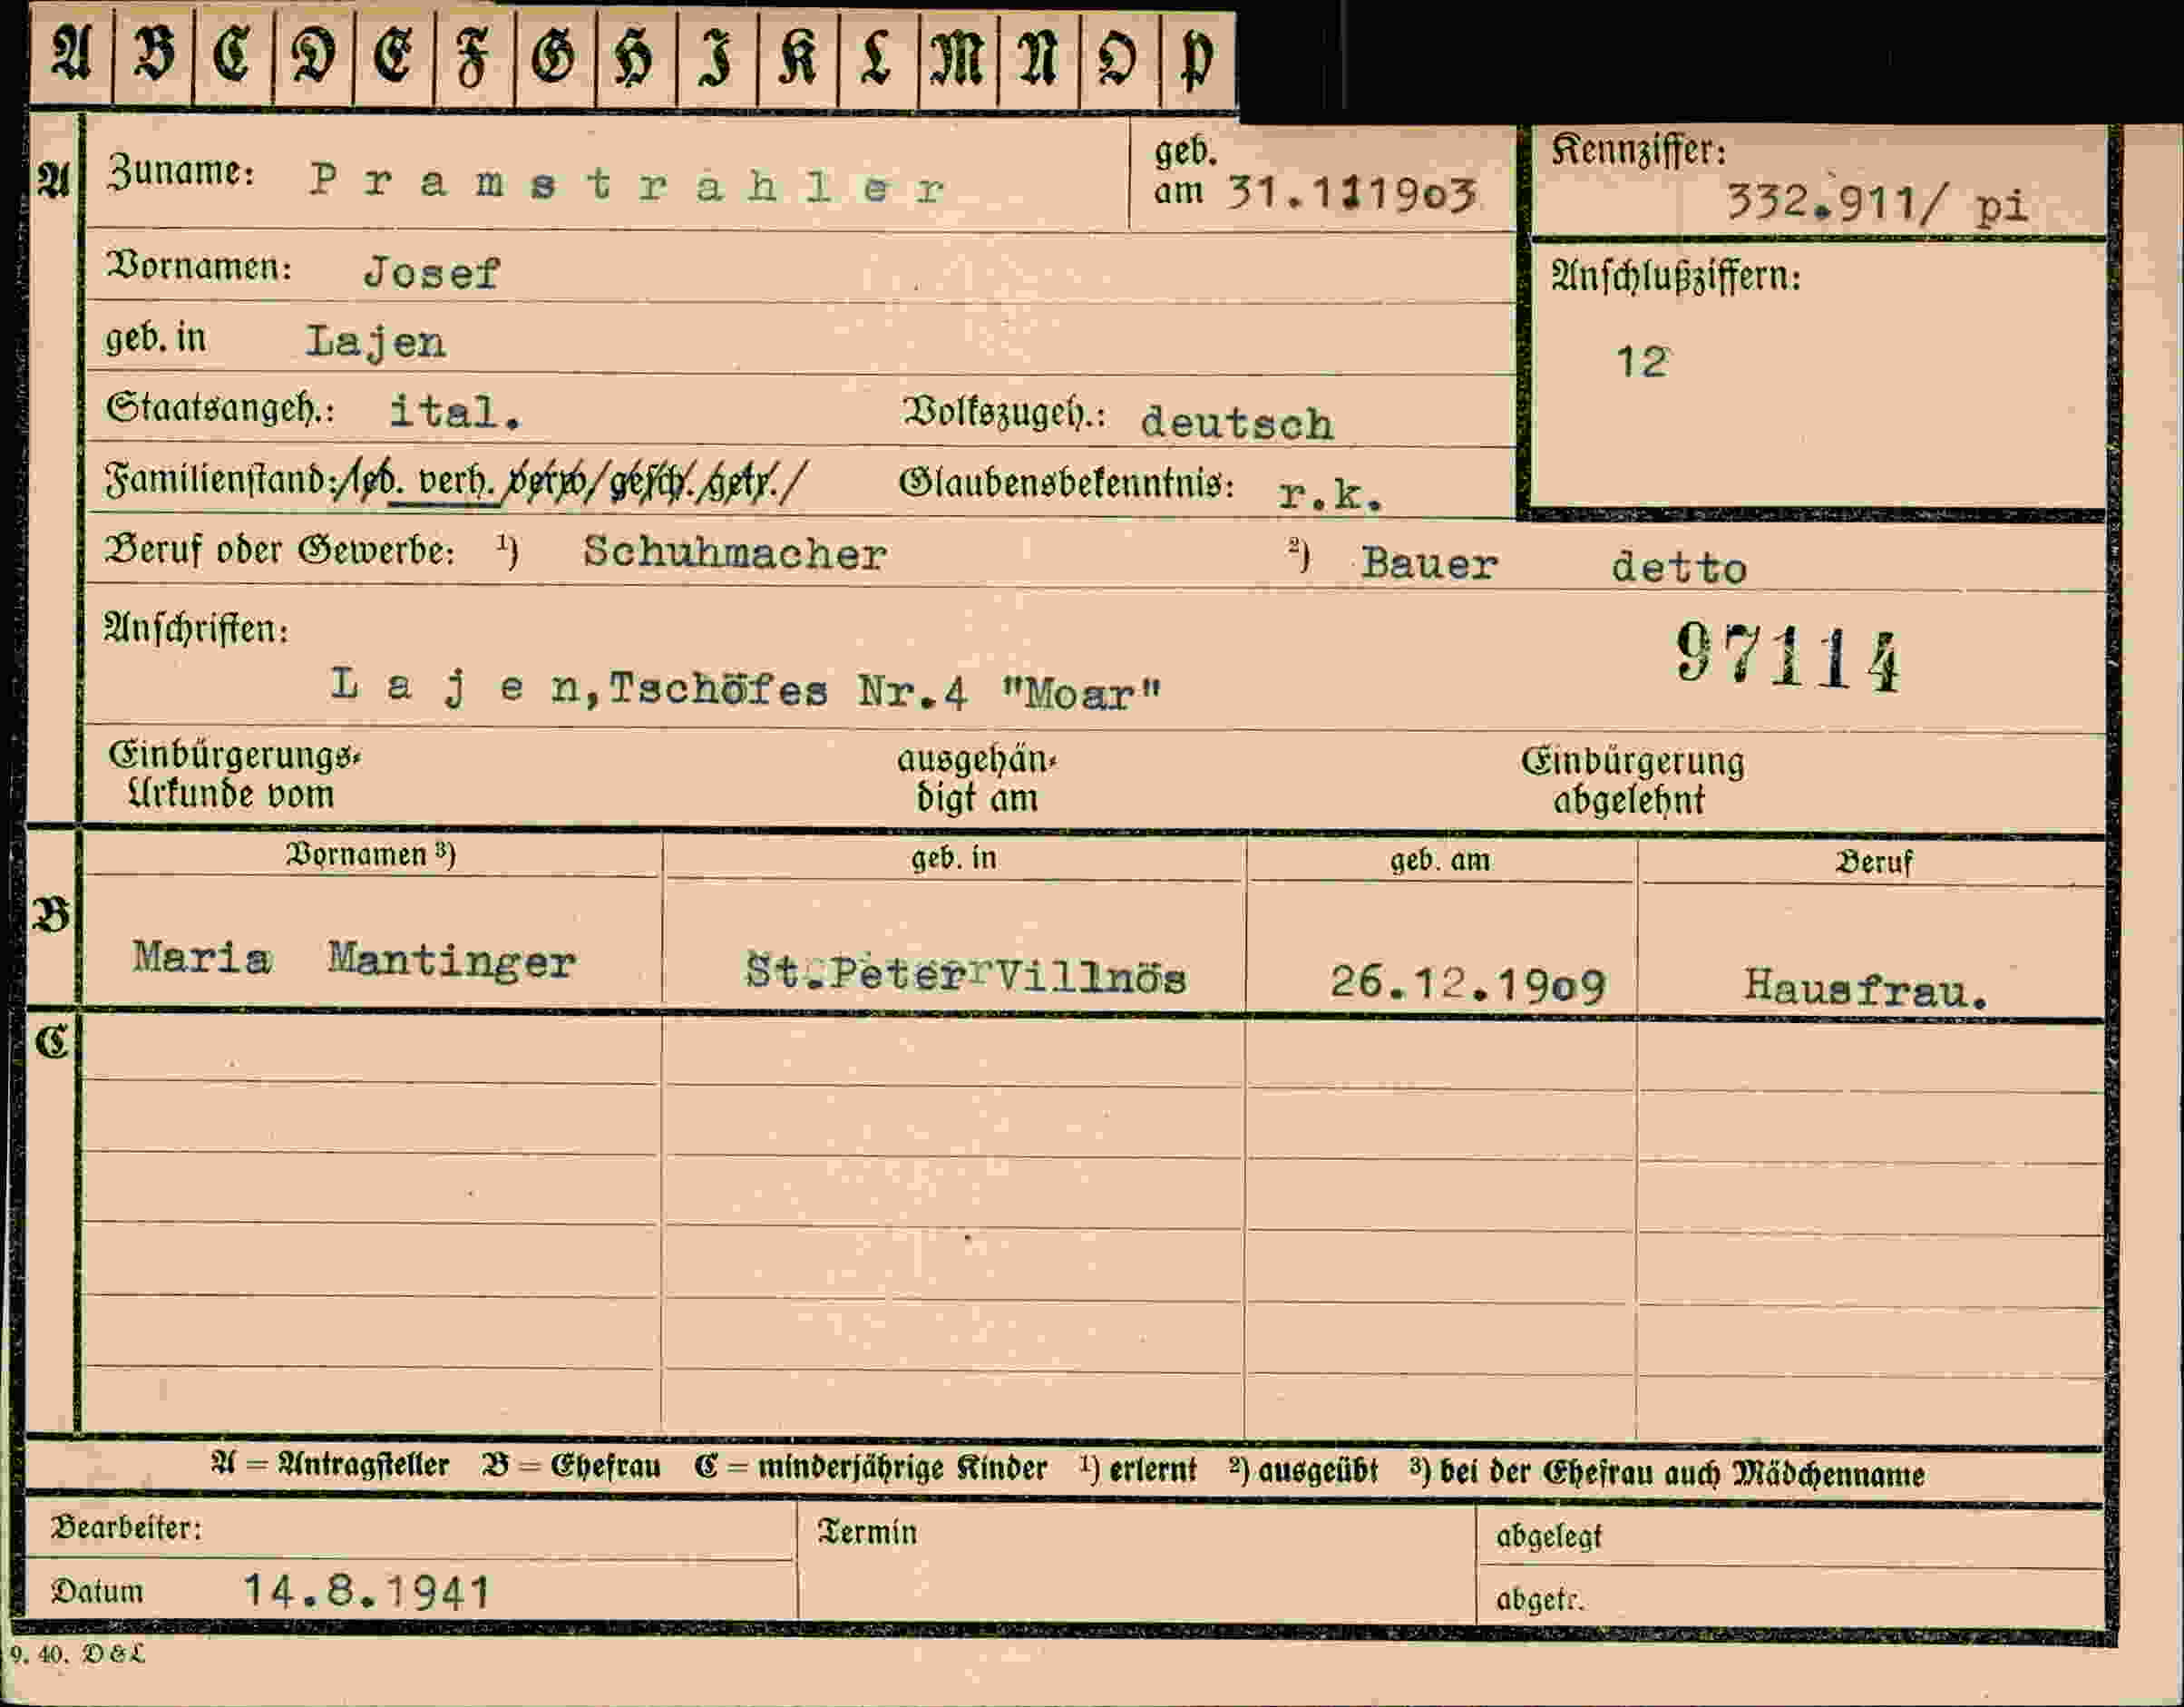 A B C D E F G H I K L M N O P
A Zuname: Pramstrahler geb. am 31.111903 Kennziffer: 332.911/ pi
Vornamen: Josef Anschlußziffern:
geb. in Lajen 12
Staatsangeh.: ital. Volkszugeh.: deutsch
Familienstand: led. verh. verw. gesch. getr. Glaubensbekenntnis: r.k.
Beruf oder Gewerbe: ¹) Schuhmacher ²) Bauer detto
Anschriften: 97114
Lajen,Tschöfes Nr.4 "Moar"
Einbürgerungs- ausgehän- Einbürgerung
Urkunde vom digt am abgelehnt
B Vornamen ³) geb. in geb. am Beruf
Maria Mantinger St.Peter Villnös 26.12.1909 Hausfrau.
C
A = Antragsteller B = Ehefrau C = minderjährige Kinder ¹) erlernt ²) ausgeübt ³) bei der Ehefrau auch Mädchenname
Bearbeiter: Termin abgelegt
Datum 14.8.1941 abgetr.
9. 40. D&L